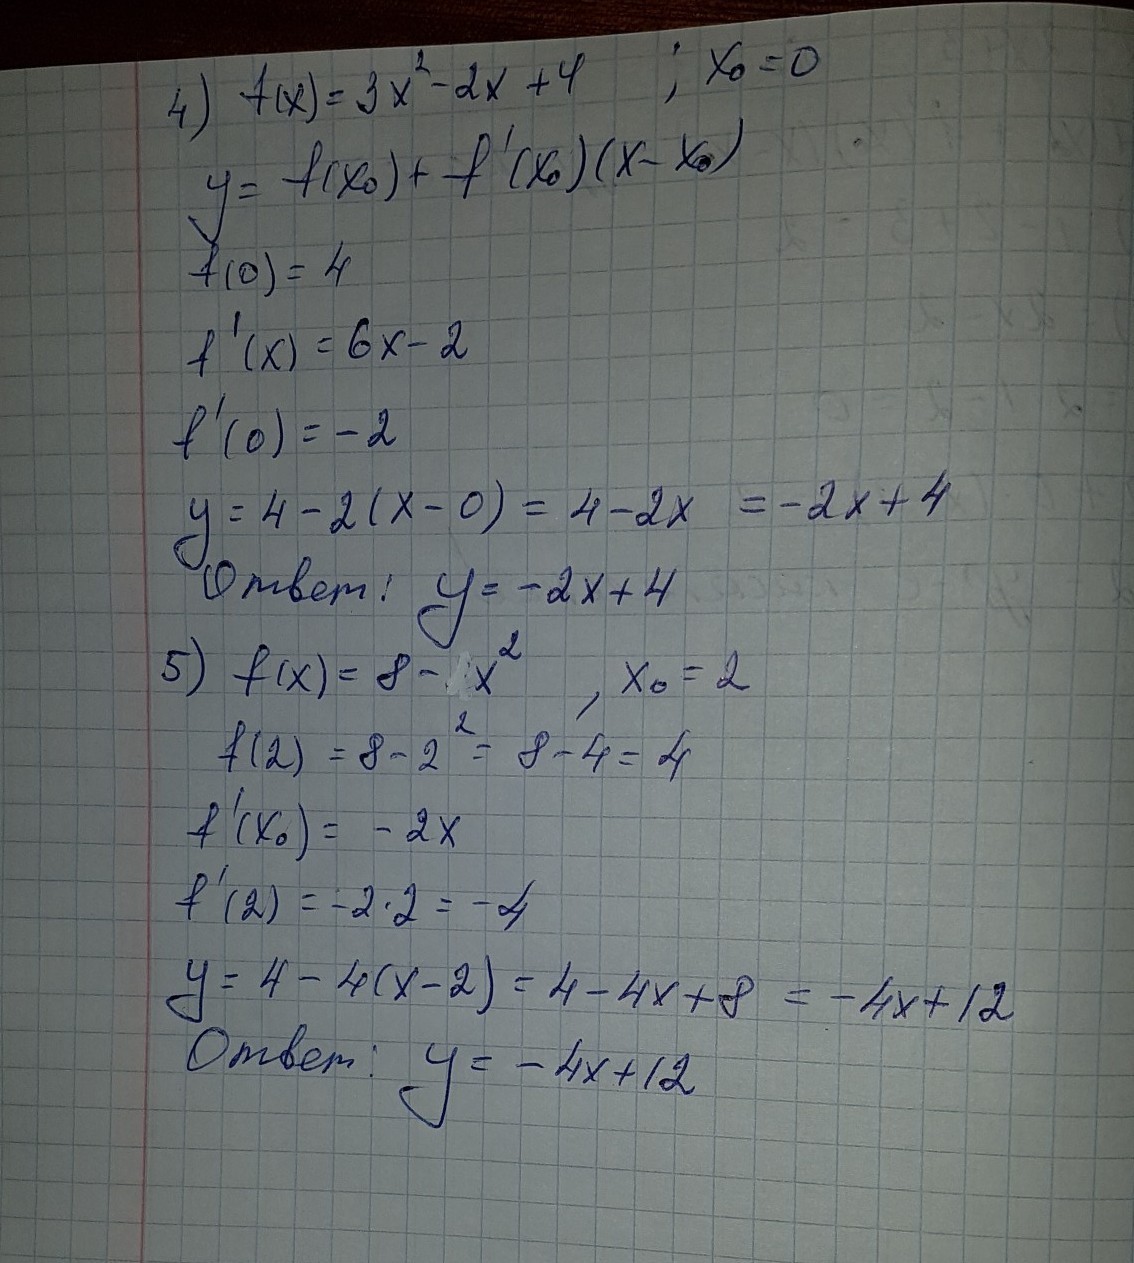 4) f(x) = 3x² - 2x + 4 ; x₀ = 0
y = f(x₀) + f'(x₀)(x - x₀)
f(0) = 4
f'(x) = 6x - 2
f'(0) = -2
y = 4 - 2(x - 0) = 4 - 2x = -2x + 4
Ответ: y = -2x + 4
5) f(x) = 8 - x² , x₀ = 2
f(2) = 8 - 2² = 8 - 4 = 4
f'(x₀) = -2x
f'(2) = -2·2 = -4
y = 4 - 4(x - 2) = 4 - 4x + 8 = -4x + 12
Ответ: y = -4x + 12